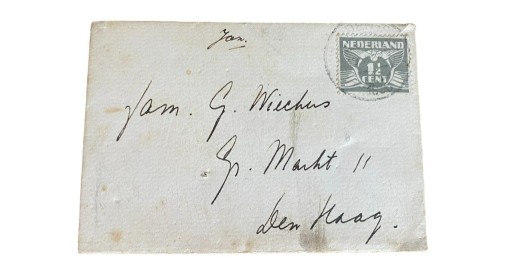 Jan.
NEDERLAND
1½
CENT
Fam. G. Wiechers
Gr. Markt 11
Den Haag.